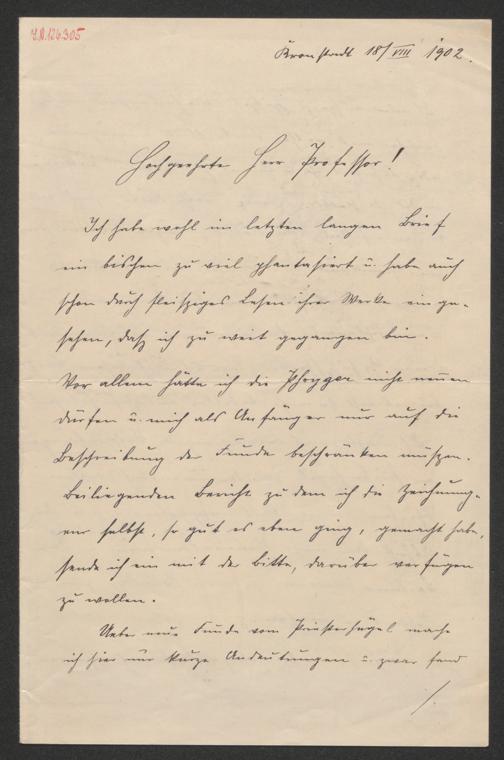 I.N. 126.305
Kronstadt 18/VIII 1902.
Hochgeehrter Herr Professor!
Ich habe wohl im letzten langen Brief
ein bischen zu viel phantasiert u. habe auch
schon durch fleissiges Lesen ihrer Werke einge-
sehen, dass ich zu weit gegangen bin.
Vor allem hätte ich die Phryger nicht nennen
dürfen u. mich als Anfänger nur auf die
Beschreibung der Funde beschränken müssen.
Beiliegenden Bericht zu dem ich die Zeichnung-
en selbst, so gut es eben ging, gemacht habe,
sende ich ein mit der Bitte, darüber verfügen
zu wollen.
Ueber neue Funde vom Priesterhügel mache
ich hier nur kurze Andeutungen u. zwar fand
./.